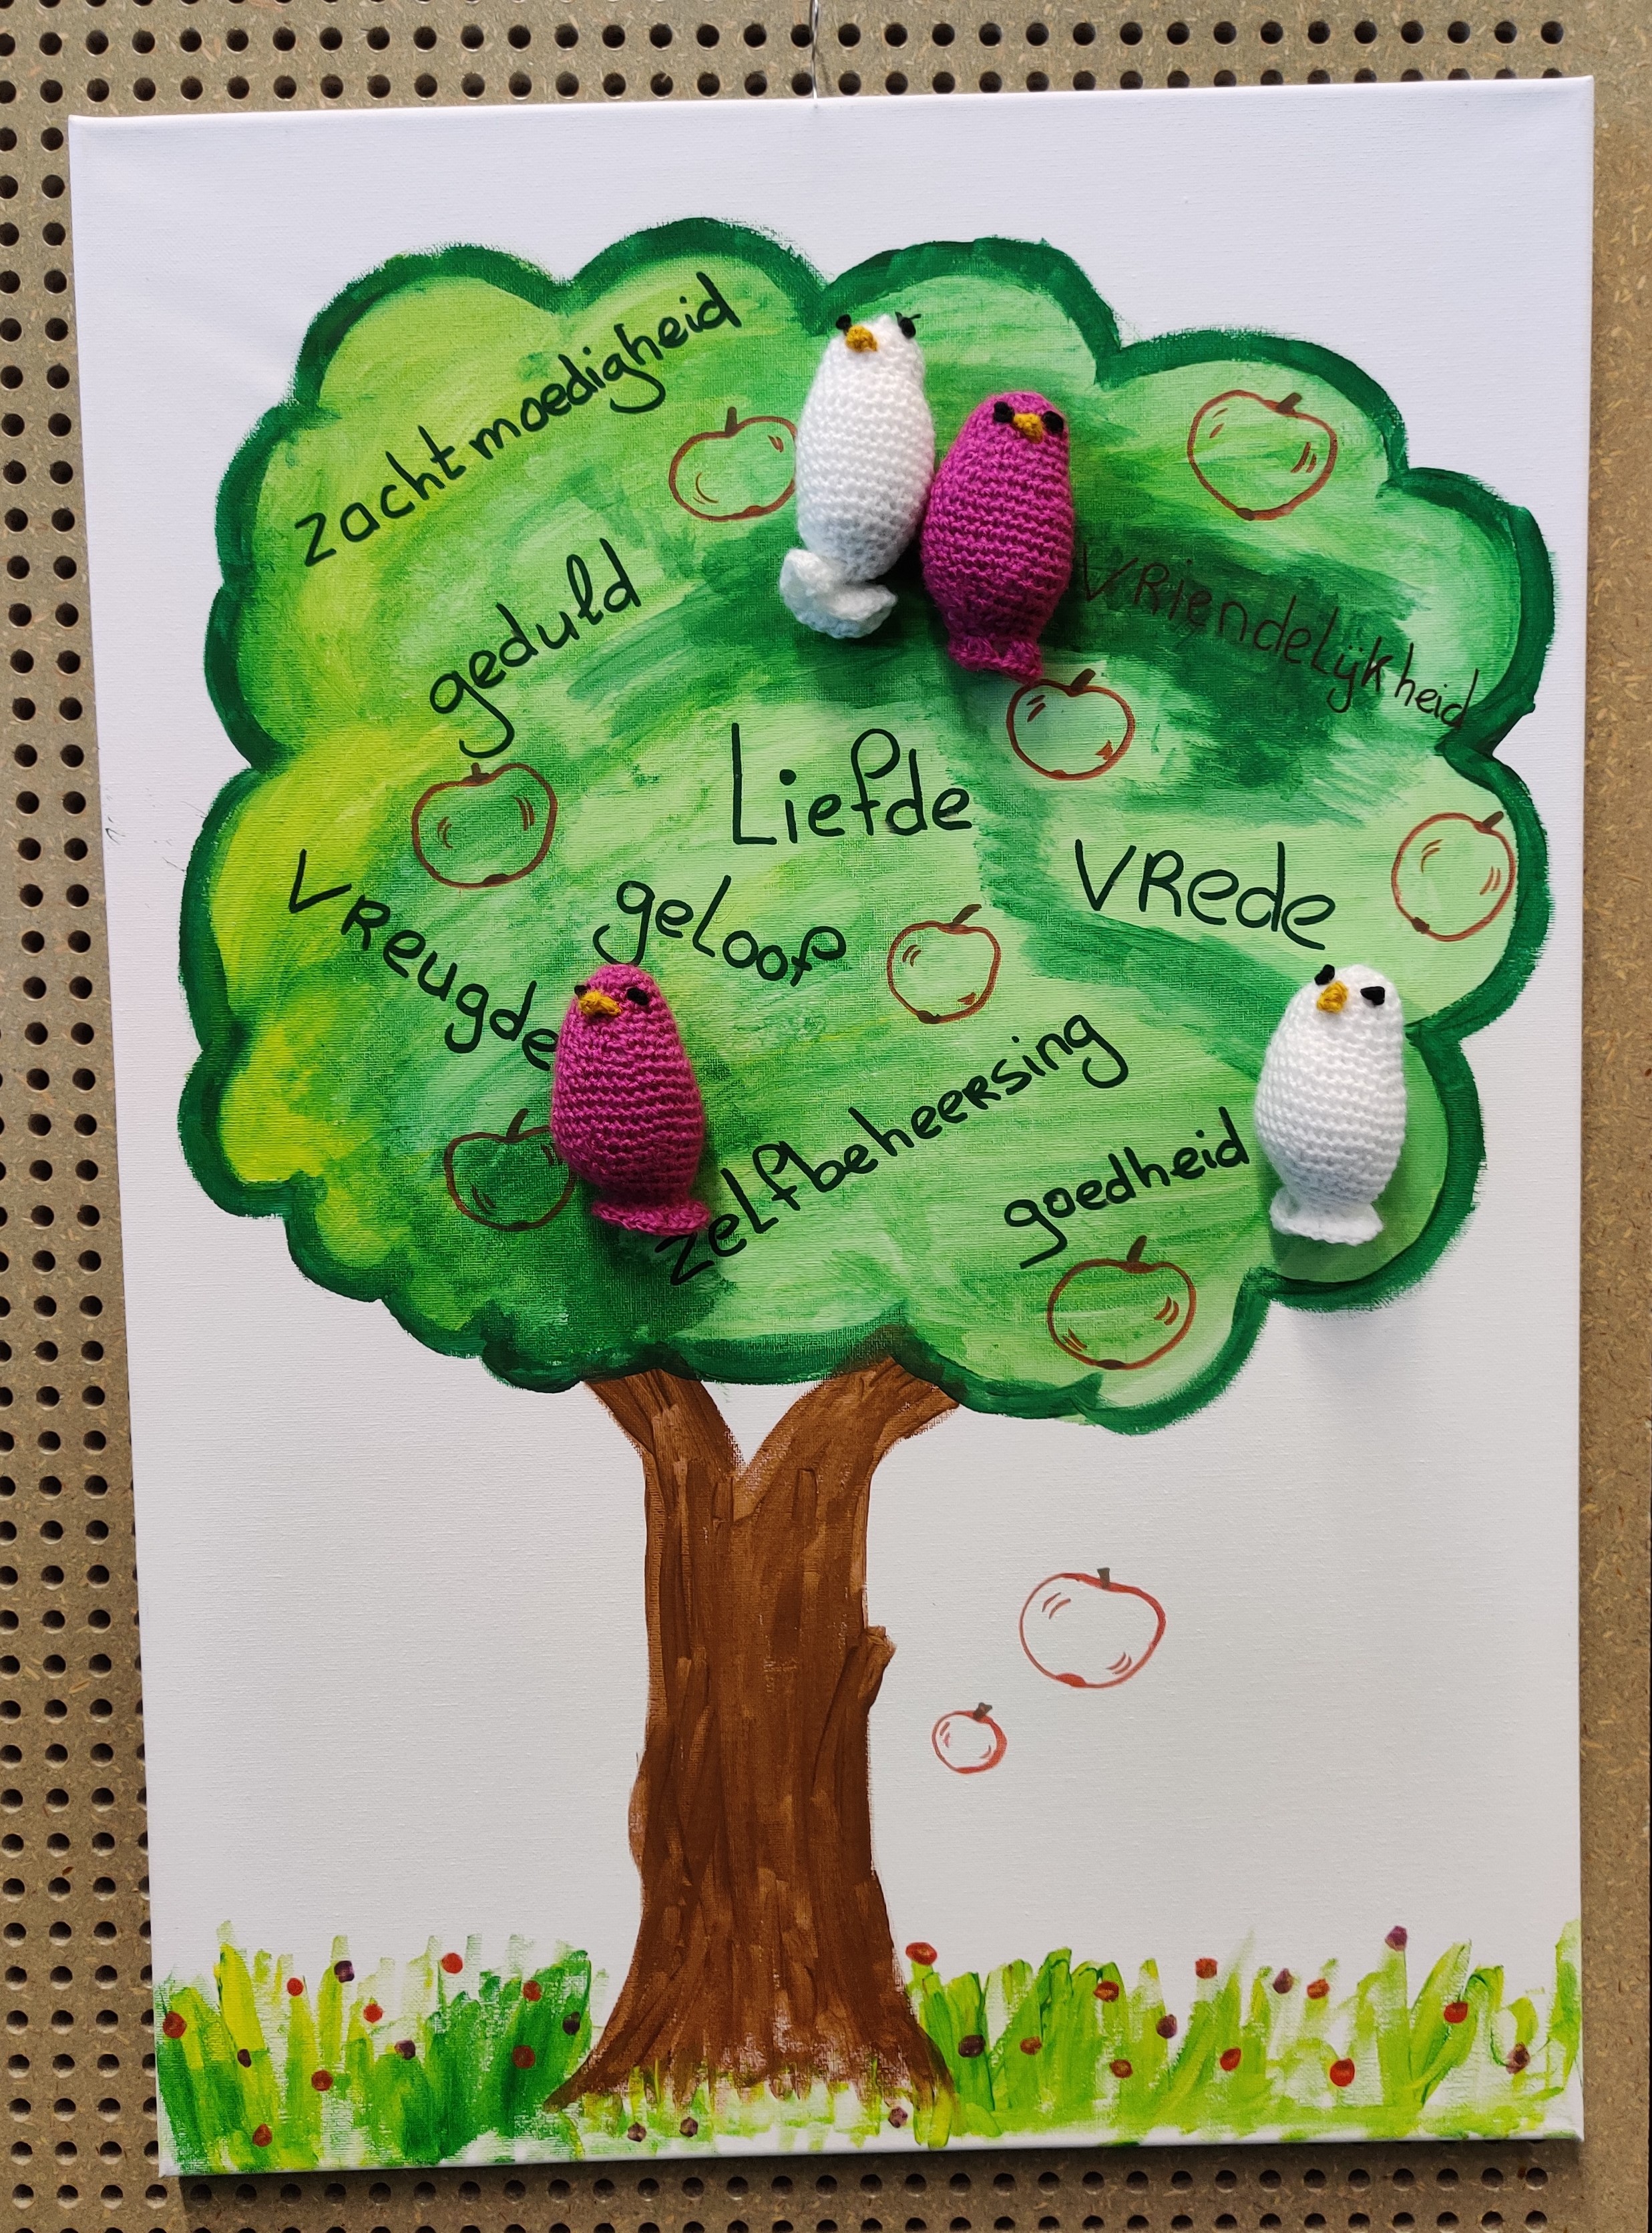 zachtmoedigheid
geduld
vriendelijkheid
Liefde
vrede
vreugde
geloof
zelfbeheersing
goedheid